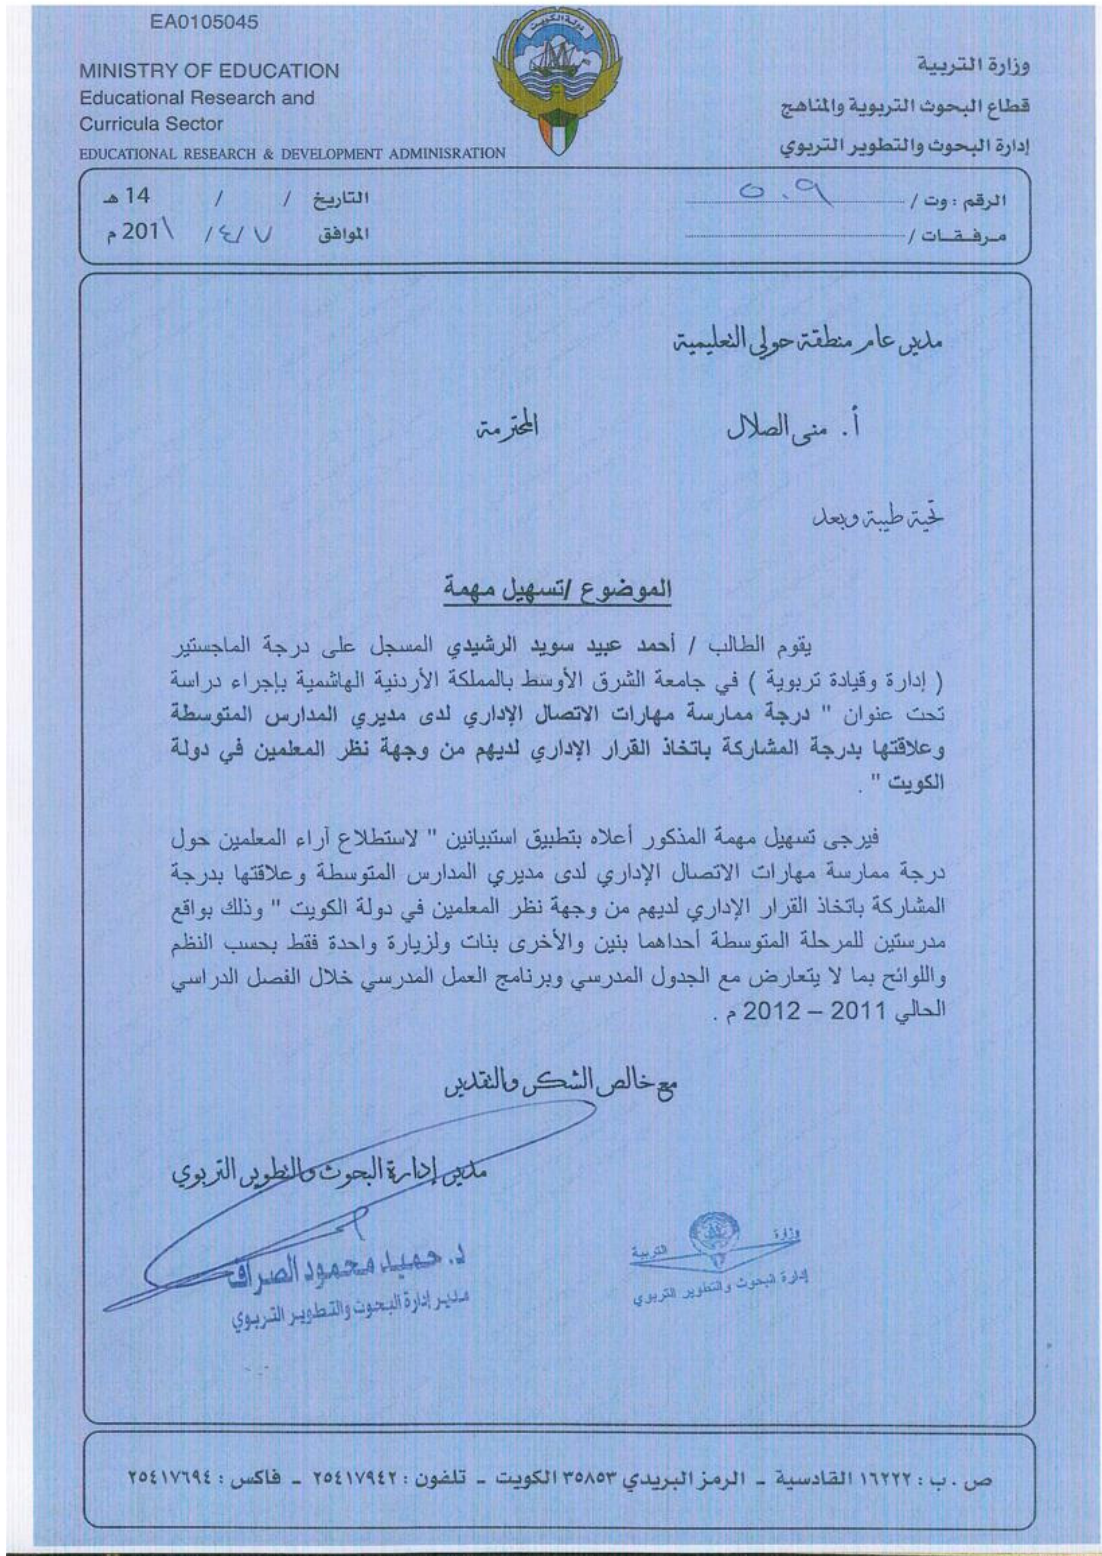 EA0105045
دولة الكويت
MINISTRY OF EDUCATION
Educational Research and
Curricula Sector
EDUCATIONAL RESEARCH & DEVELOPMENT ADMINISRATION
وزارة التربية
قطاع البحوث التربوية والمناهج
إدارة البحوث والتطوير التربوي
الرقم : وت / ٥٠٩
مرفقات /
التاريخ / / 14 هـ
الموافق ٧ /٤ / 201١ م
مدير عام منطقة حولي التعليمية
أ. منى الصلال المحترمة
تحية طيبة وبعد
الموضوع /تسهيل مهمة
يقوم الطالب / أحمد عبيد سويد الرشيدي المسجل على درجة الماجستير
( إدارة وقيادة تربوية ) في جامعة الشرق الأوسط بالمملكة الأردنية الهاشمية بإجراء دراسة
تحت عنوان " درجة ممارسة مهارات الاتصال الإداري لدى مديري المدارس المتوسطة
وعلاقتها بدرجة المشاركة باتخاذ القرار الإداري لديهم من وجهة نظر المعلمين في دولة
الكويت " .
فيرجى تسهيل مهمة المذكور أعلاه بتطبيق استبيانين " لاستطلاع آراء المعلمين حول
درجة ممارسة مهارات الاتصال الإداري لدى مديري المدارس المتوسطة وعلاقتها بدرجة
المشاركة باتخاذ القرار الإداري لديهم من وجهة نظر المعلمين في دولة الكويت " وذلك بواقع
مدرستين للمرحلة المتوسطة أحداهما بنين والأخرى بنات ولزيارة واحدة فقط بحسب النظم
واللوائح بما لا يتعارض مع الجدول المدرسي وبرنامج العمل المدرسي خلال الفصل الدراسي
الحالي 2011 – 2012 م .
مع خالص الشكر والتقدير
مدير إدارة البحوث والتطوير التربوي
د. حميد محمود الصراف
مدير إدارة البحوث والتطوير التربوي
وزارة التربية
إدارة البحوث والتطوير التربوي
ص . ب : ١٦٢٢٢ القادسية - الرمز البريدي ٣٥٨٥٣ الكويت - تلفون : ٢٥٤١٧٩٤٢ - فاكس : ٢٥٤١٧٦٩٤